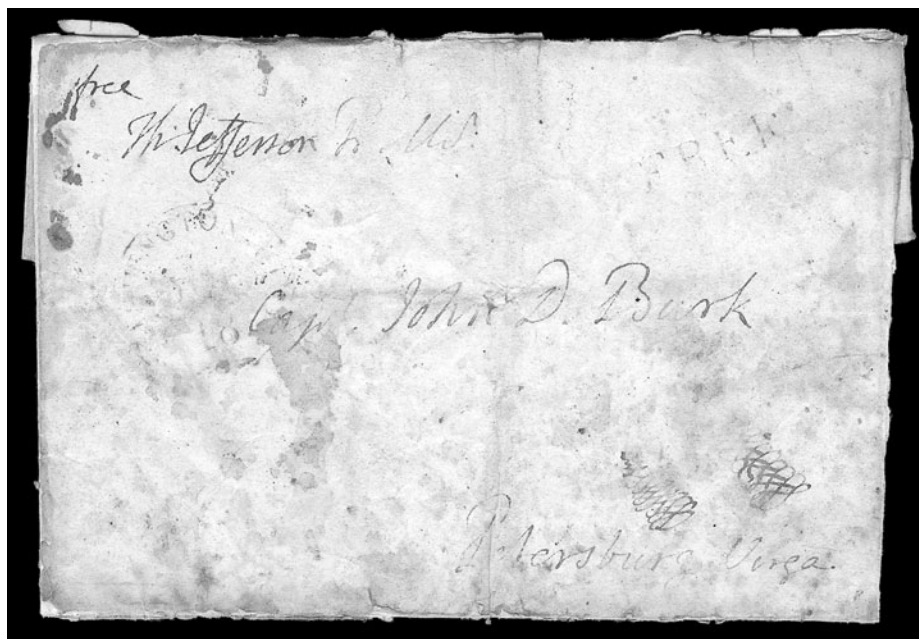 free
Th: Jefferson Pr. U.S.
FREE
Capt. John D. Burk
Petersburg Virga.